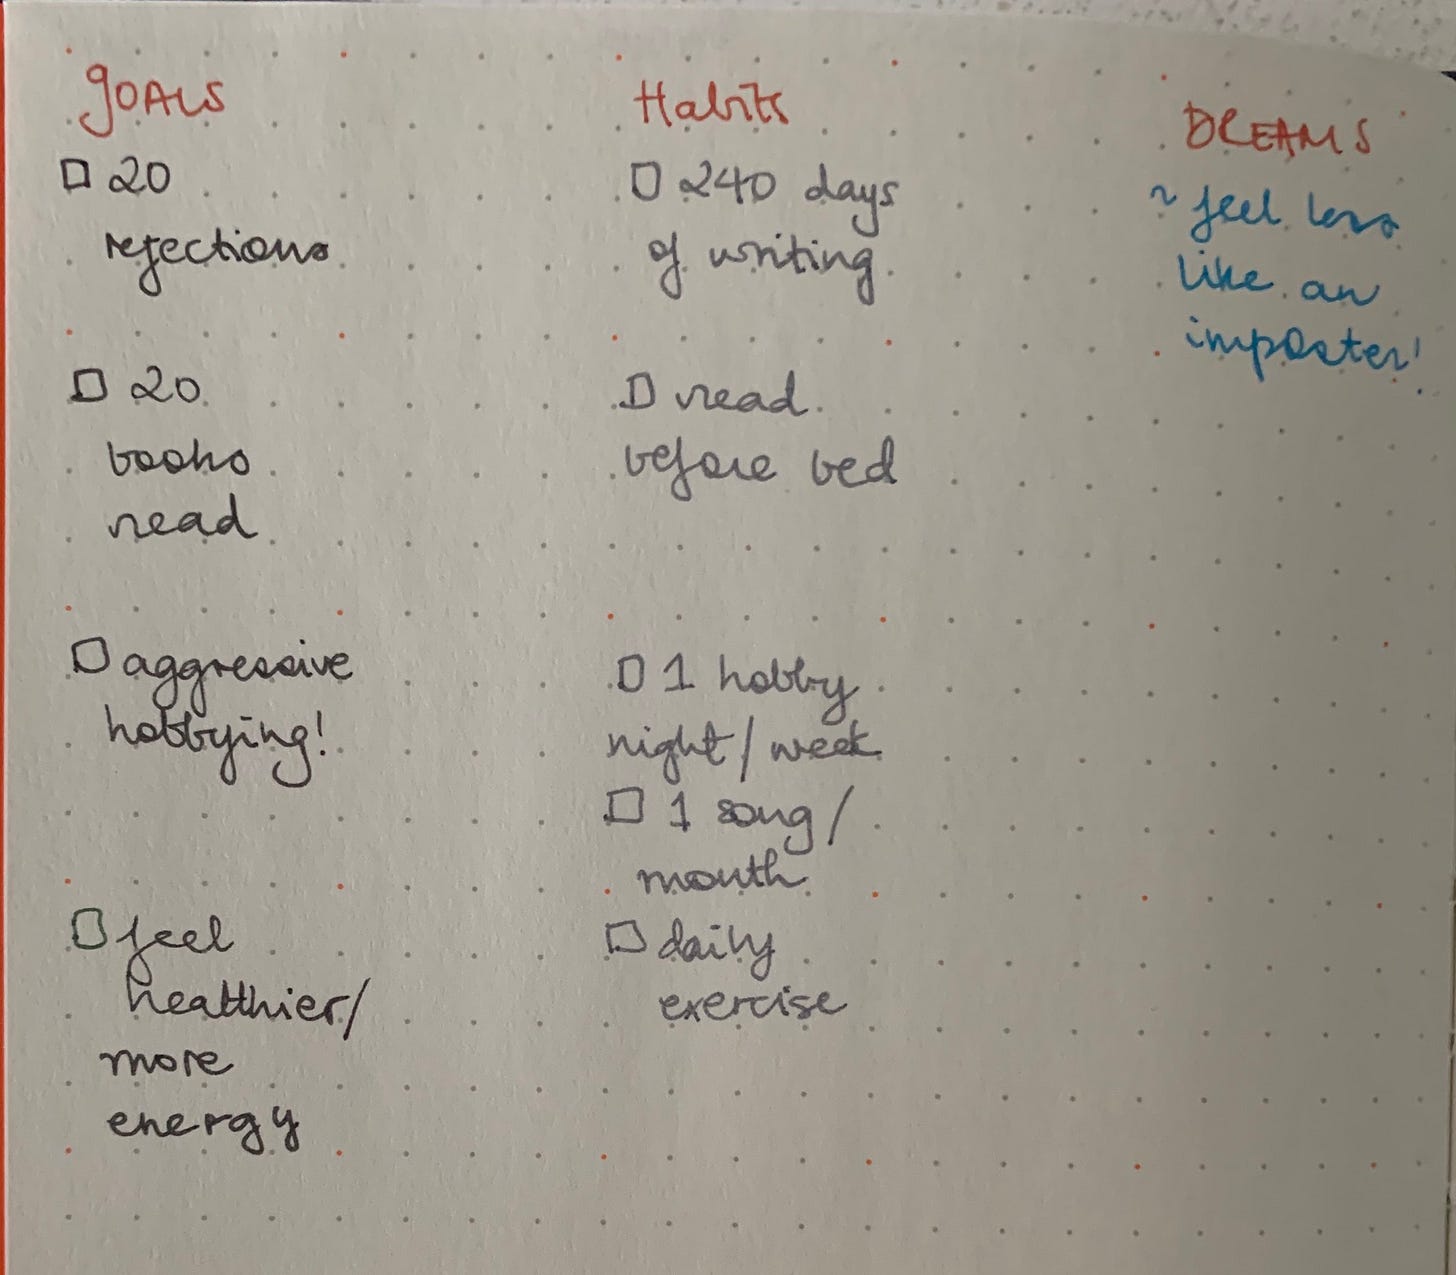 GOALS
☐ 20
rejections
☐ 20
books
read
☐ aggressive
hobbying!
☐ feel
healthier/
more
energy
Habits
☐ 240 days
of writing
☐ read
before bed
☐ 1 hobby
night/week
☐ 1 song/
month
☐ daily
exercise
DREAMS
~ feel less
like an
imposter!